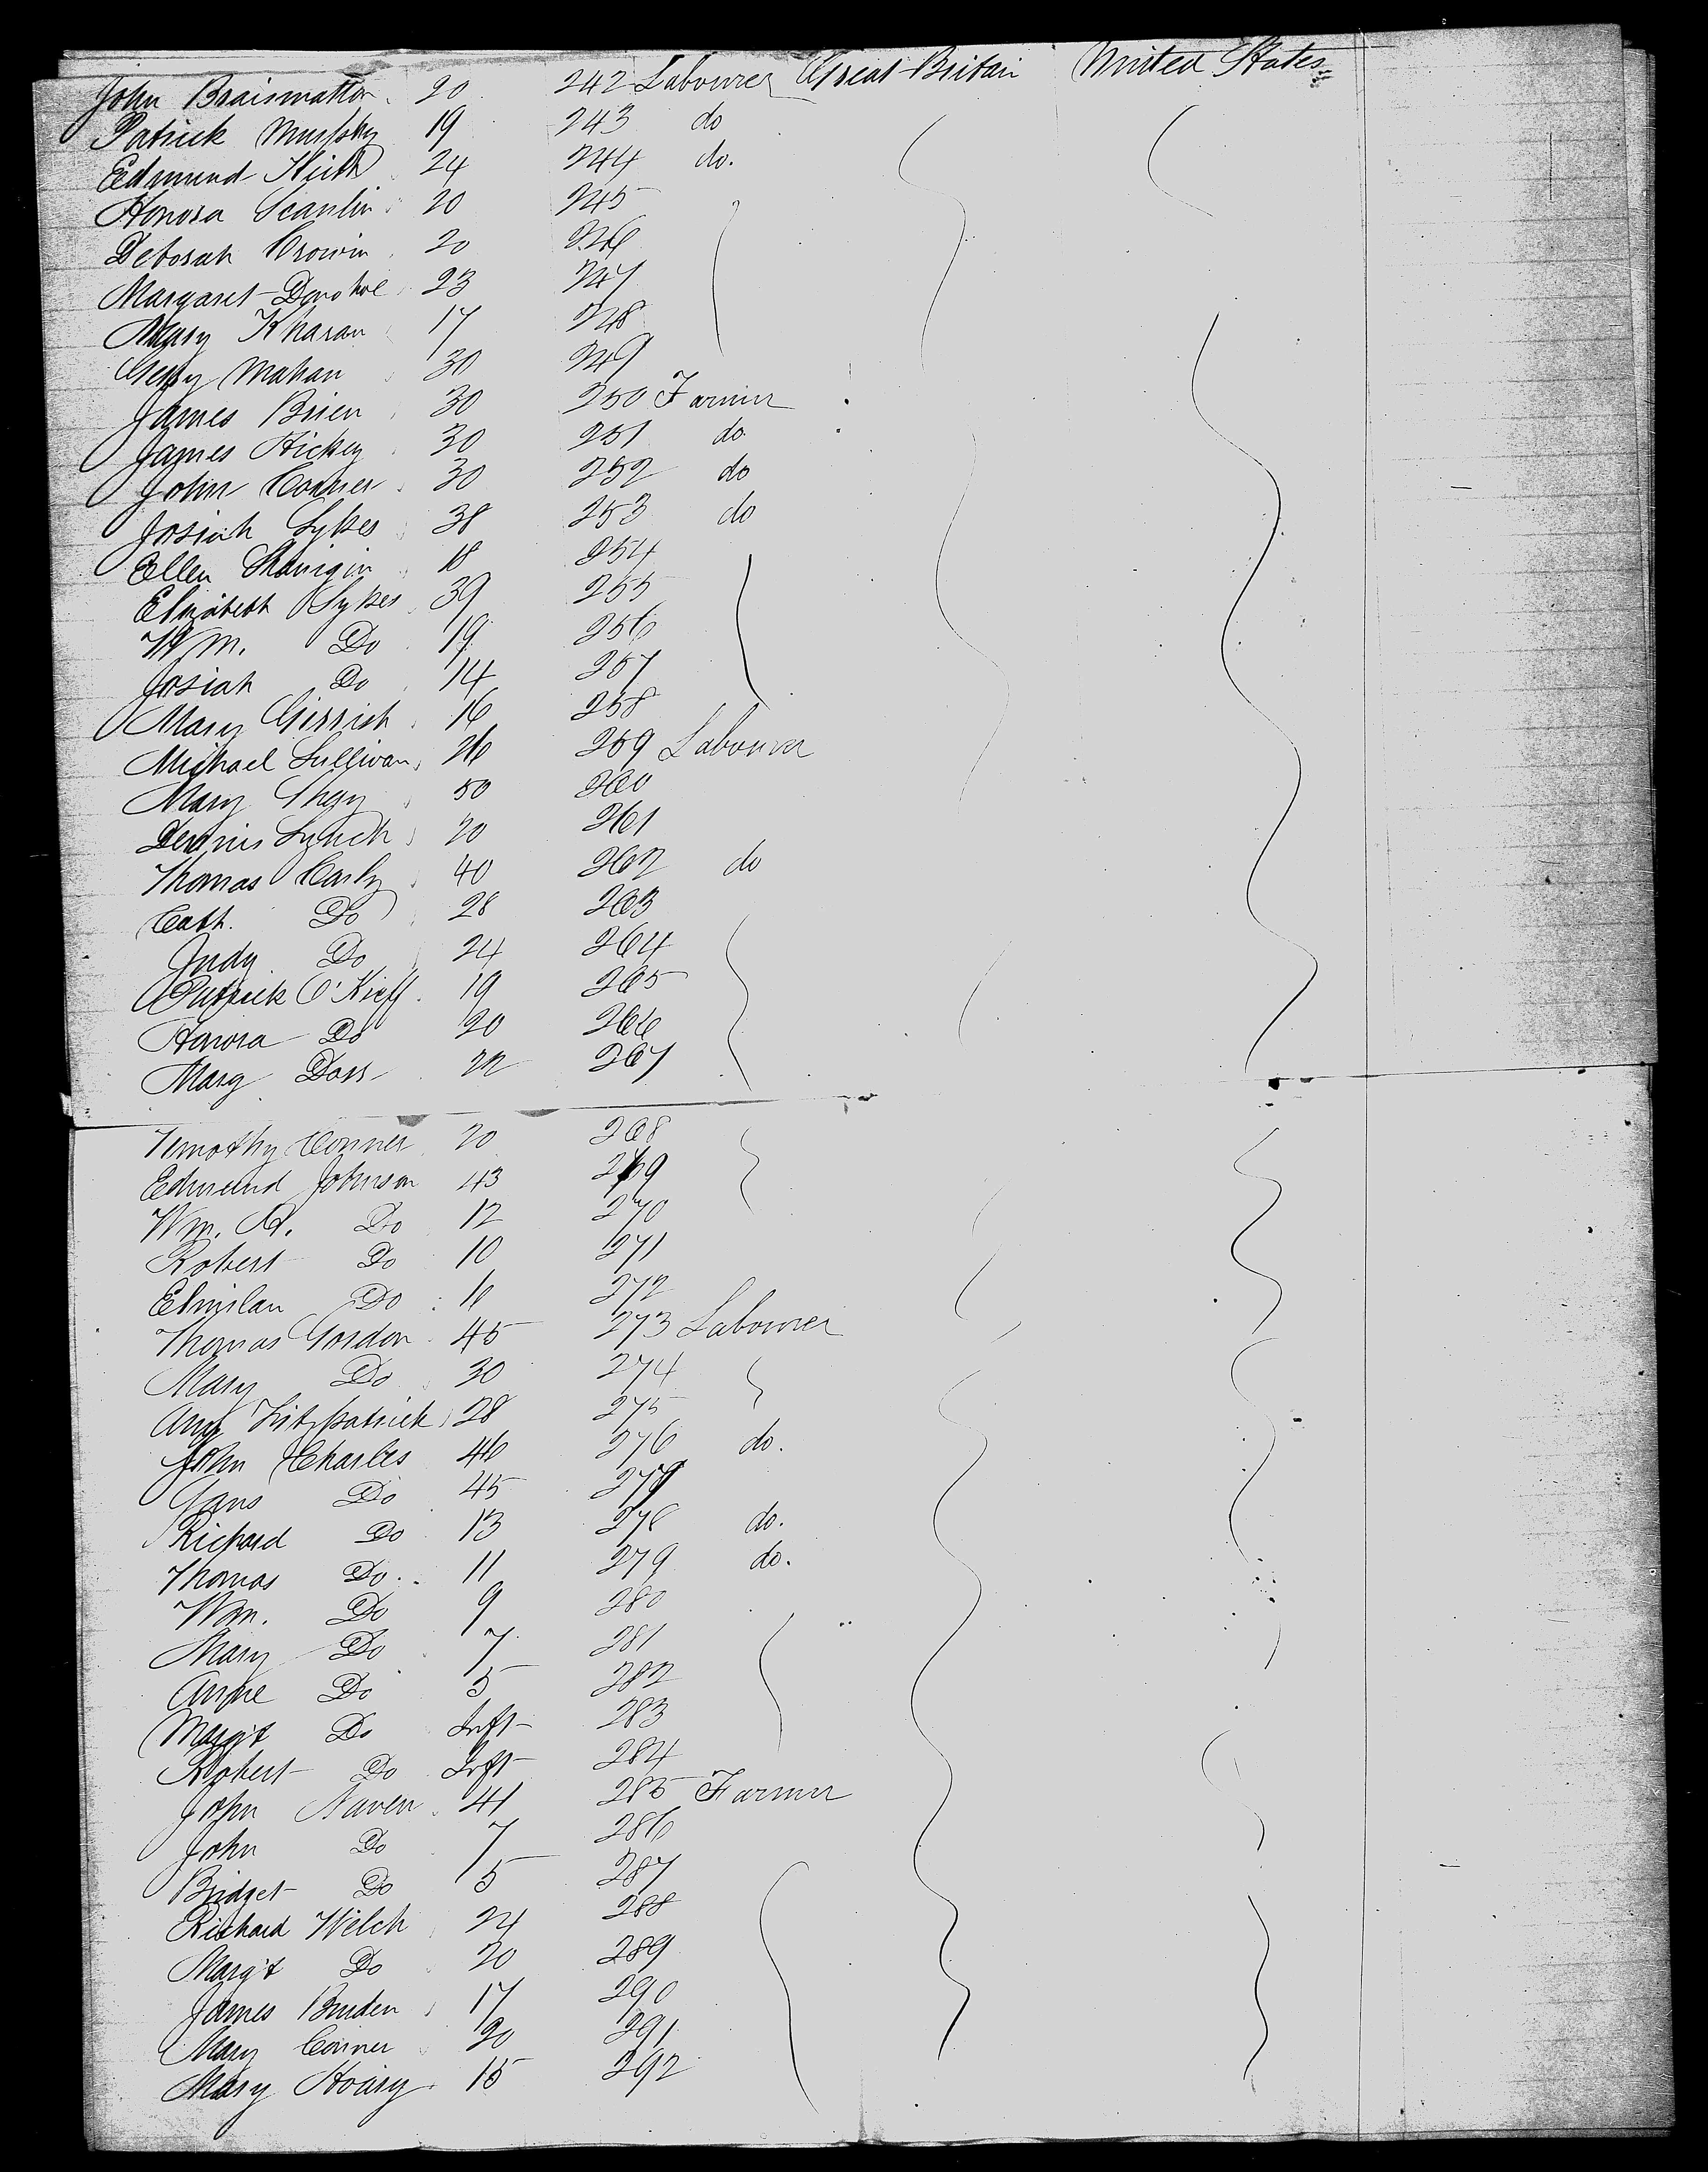 John Braismatton 20 242 Labourer Great Britain United States
Patrick Murphy 19 243 do
Edmund Keith 24 244 do.
Honora Scanlin 20 245
Deborah Crowin 20 246
Margaret Donohoe 23 247
Mary Kharan 17 248
Mahan 30 249
James Brien 30 250 Farmer
James Hickey 30 251 do.
John Conner 30 252 do
Josiah Sykes 38 253 do
Ellen 18 254
Elizabeth Sykes 39 255
Wm. Do 19 256
Josiah Do 14 257
Mary Girrish 16 258
Michael Sullivan 26 259 Labourer
Mary Shey 50 260
Dennis Lynch 20 261
Thomas Early 40 262 do
Cath. Do 28 263
Judy Do 24 264
Patrick O'Kieff 19 265
Honora Do 20 266
Mary Doss 22 267
Timothy Conner 20 268
Edmund Johnson 43 269
Wm. R. Do 12 270
Robert Do 10 271
Do 272
Thomas Gordon 45 273 Labourer
Mary Do 30 274
Ann Fitzpatrick 28 275
John Charles 46 276 do.
Jane Do 45 277
Richard Do 13 278 do.
Thomas Do. 11 279 do.
Wm. Do 9 280
Mary Do 7 281
Anne Do 5 282
Margt Do Inft 283
Robert Do Inft 284
John Naven 41 285 Farmer
John Do 7 286
Bridget Do 5 287
Richard Welch 24 288
Margt Do 20 289
James Burden 17 290
Mary Conner 20 291
Mary Hoary 15 292